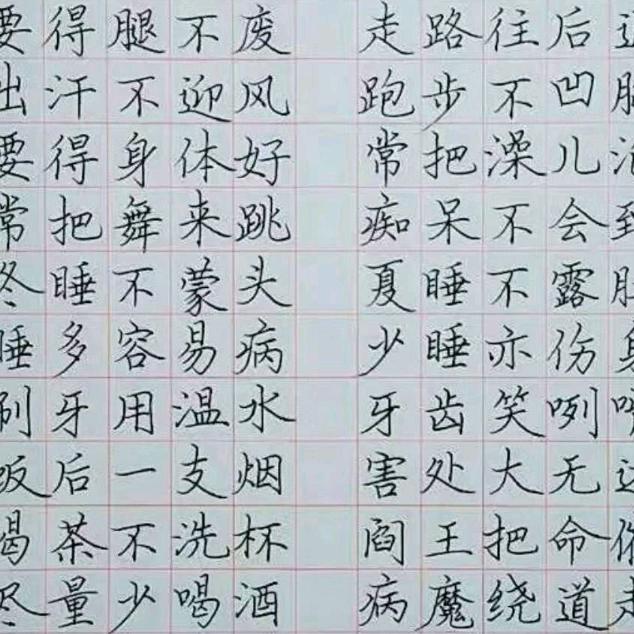 要得腿不废 走路往后
出汗不迎风 跑步不凹
要得身体好 常把澡儿
常把舞来跳 痴呆不会到
冬睡不蒙头 夏睡不露
睡多容易病 少睡亦伤身
刷牙用温水 牙齿笑咧
饭后一支烟 害处大无
喝茶不洗杯 阎王把命
尽量少喝酒 病魔绕道走